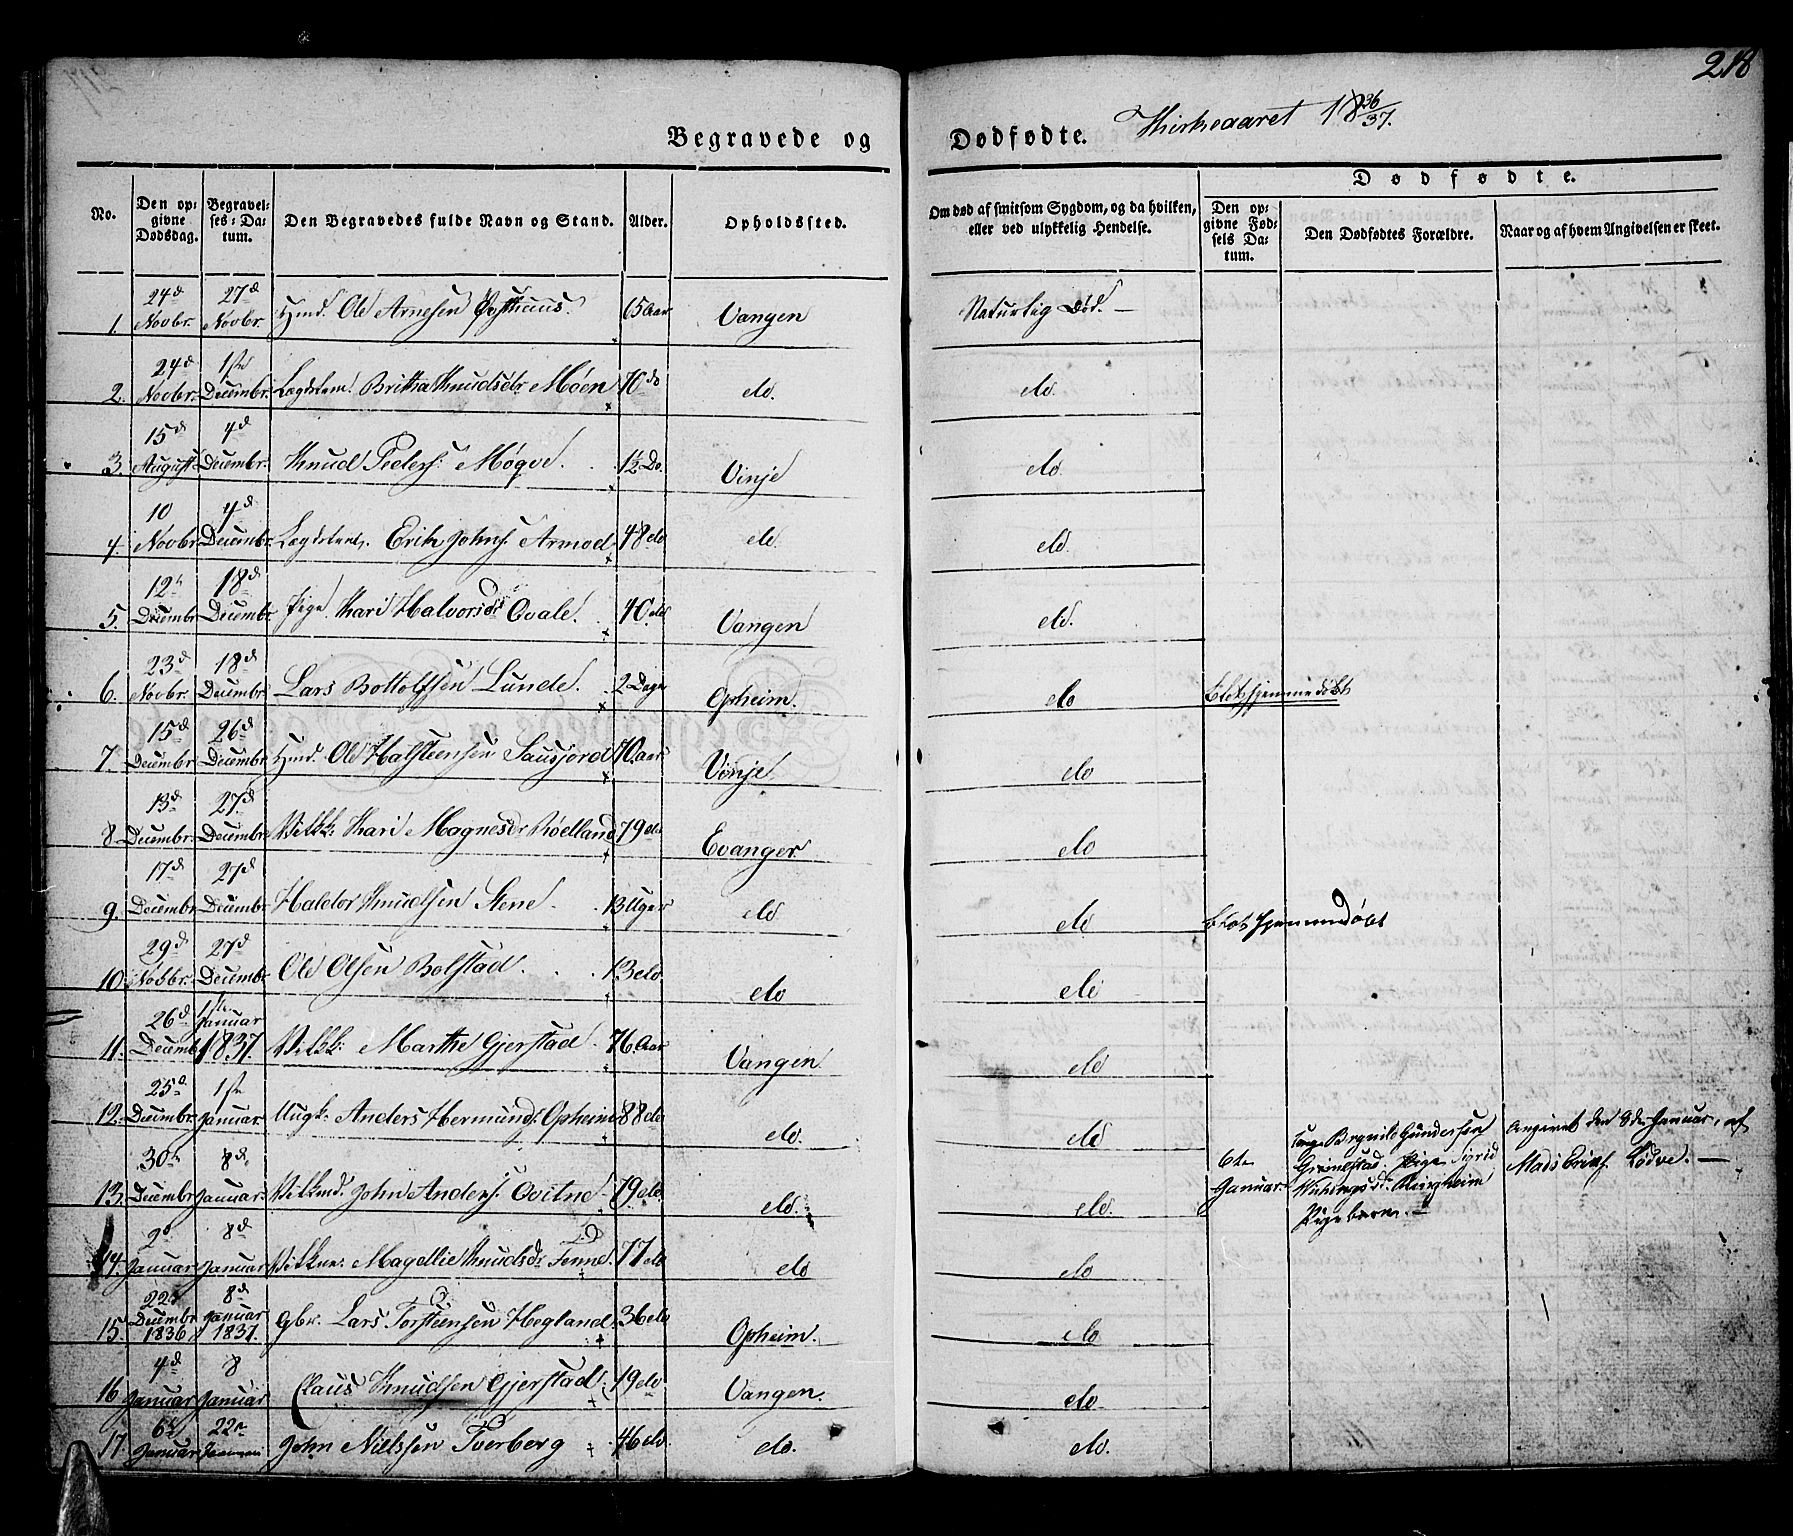 218
Begravede og Dødfødte. Kirkeaaret 18 36/37.
Dødfødte.
No.
Den op-
givne
Dødsdag.
Begravel-
ses-Da-
tum.
Den Begravedes fulde Navn og Stand.
Alder.
Opholdsted.
Om død af smitsom Sygdom, og da hvilken,
eller ved ulykkelig Hendelse.
Den op-
givne Fød-
sels Da-
tum.
Den Dødfødtes Forældre.
Naar og af hvem Angivelsen er skeet.
1. 24d Novbr. 27d Novbr. Ole Arnesen 65 Aar Vangen Naturlig Død. —
2. 24d Novbr. 1ste Decembr. Lægdslem. Britha Knudsdr Møen 70 do do. do.
3. 15d August 4d Decembr. Knud Peders: Møqve. 1½ Do. Vinje do.
4. 10 Novbr 4d Decembr. Lægdslem. Erik Johns. Armod 48 do do. do.
5. 12t Decembr 18d Decembr. Pige Kari Halvorsdr Qvale. 40 do Vangen do.
6. 23d Novbr. 18d Decembr. Lars Bottolfsen Lunde. 2 Dage Opheim. do Blot hjemmedøbt
7. 15d Decembr 26d Decembr. Ole Halsteensen Sausjord 70. aar Vinje. do
8 13d Decembr. 27d Decembr. Kari Magnesdr Røelland 79 do Evanger. do
9. 17d Decembr. 27d Decembr. Haldor Knudsen Stene. 13 Uger do do Blot Hjemmedøbt
10. 29d Novbr. 27d Decembr. Ole Olsen Bolstad. 13 do. do do
11. 26d Decembr 1ste Januar 1837. Marthe Gjerstad 76. Aar Vangen do
12. 25d Decembr. 1ste Januar. Ungk: Anders Hermunds. Opheim 88 do do. do
13. 30t Decembr 8d. Januar. John Anders. Qvitne 79 do. do. do.
6te
Januar
Gundersen
Grimestad. Pige Sigrid
Ringheim
Pigebarn. —
Angivet den 8de Januar, af
Mads Lødve. —
14. 2d Januar 8d Januar Magellie Knudsdr Fenne. 77 do do do
15. 22d Decembr 1836 8d Januar 1837. Gbr. Lars Torsteensen Hegland. 36 do Opheim. do
16 4d Januar 8 Januar Claus Knudsen Gjerstad. 19 do Vangen. do
17. 6d Januar 22n Januar John Nielssen Tverberg 46 do do. do.